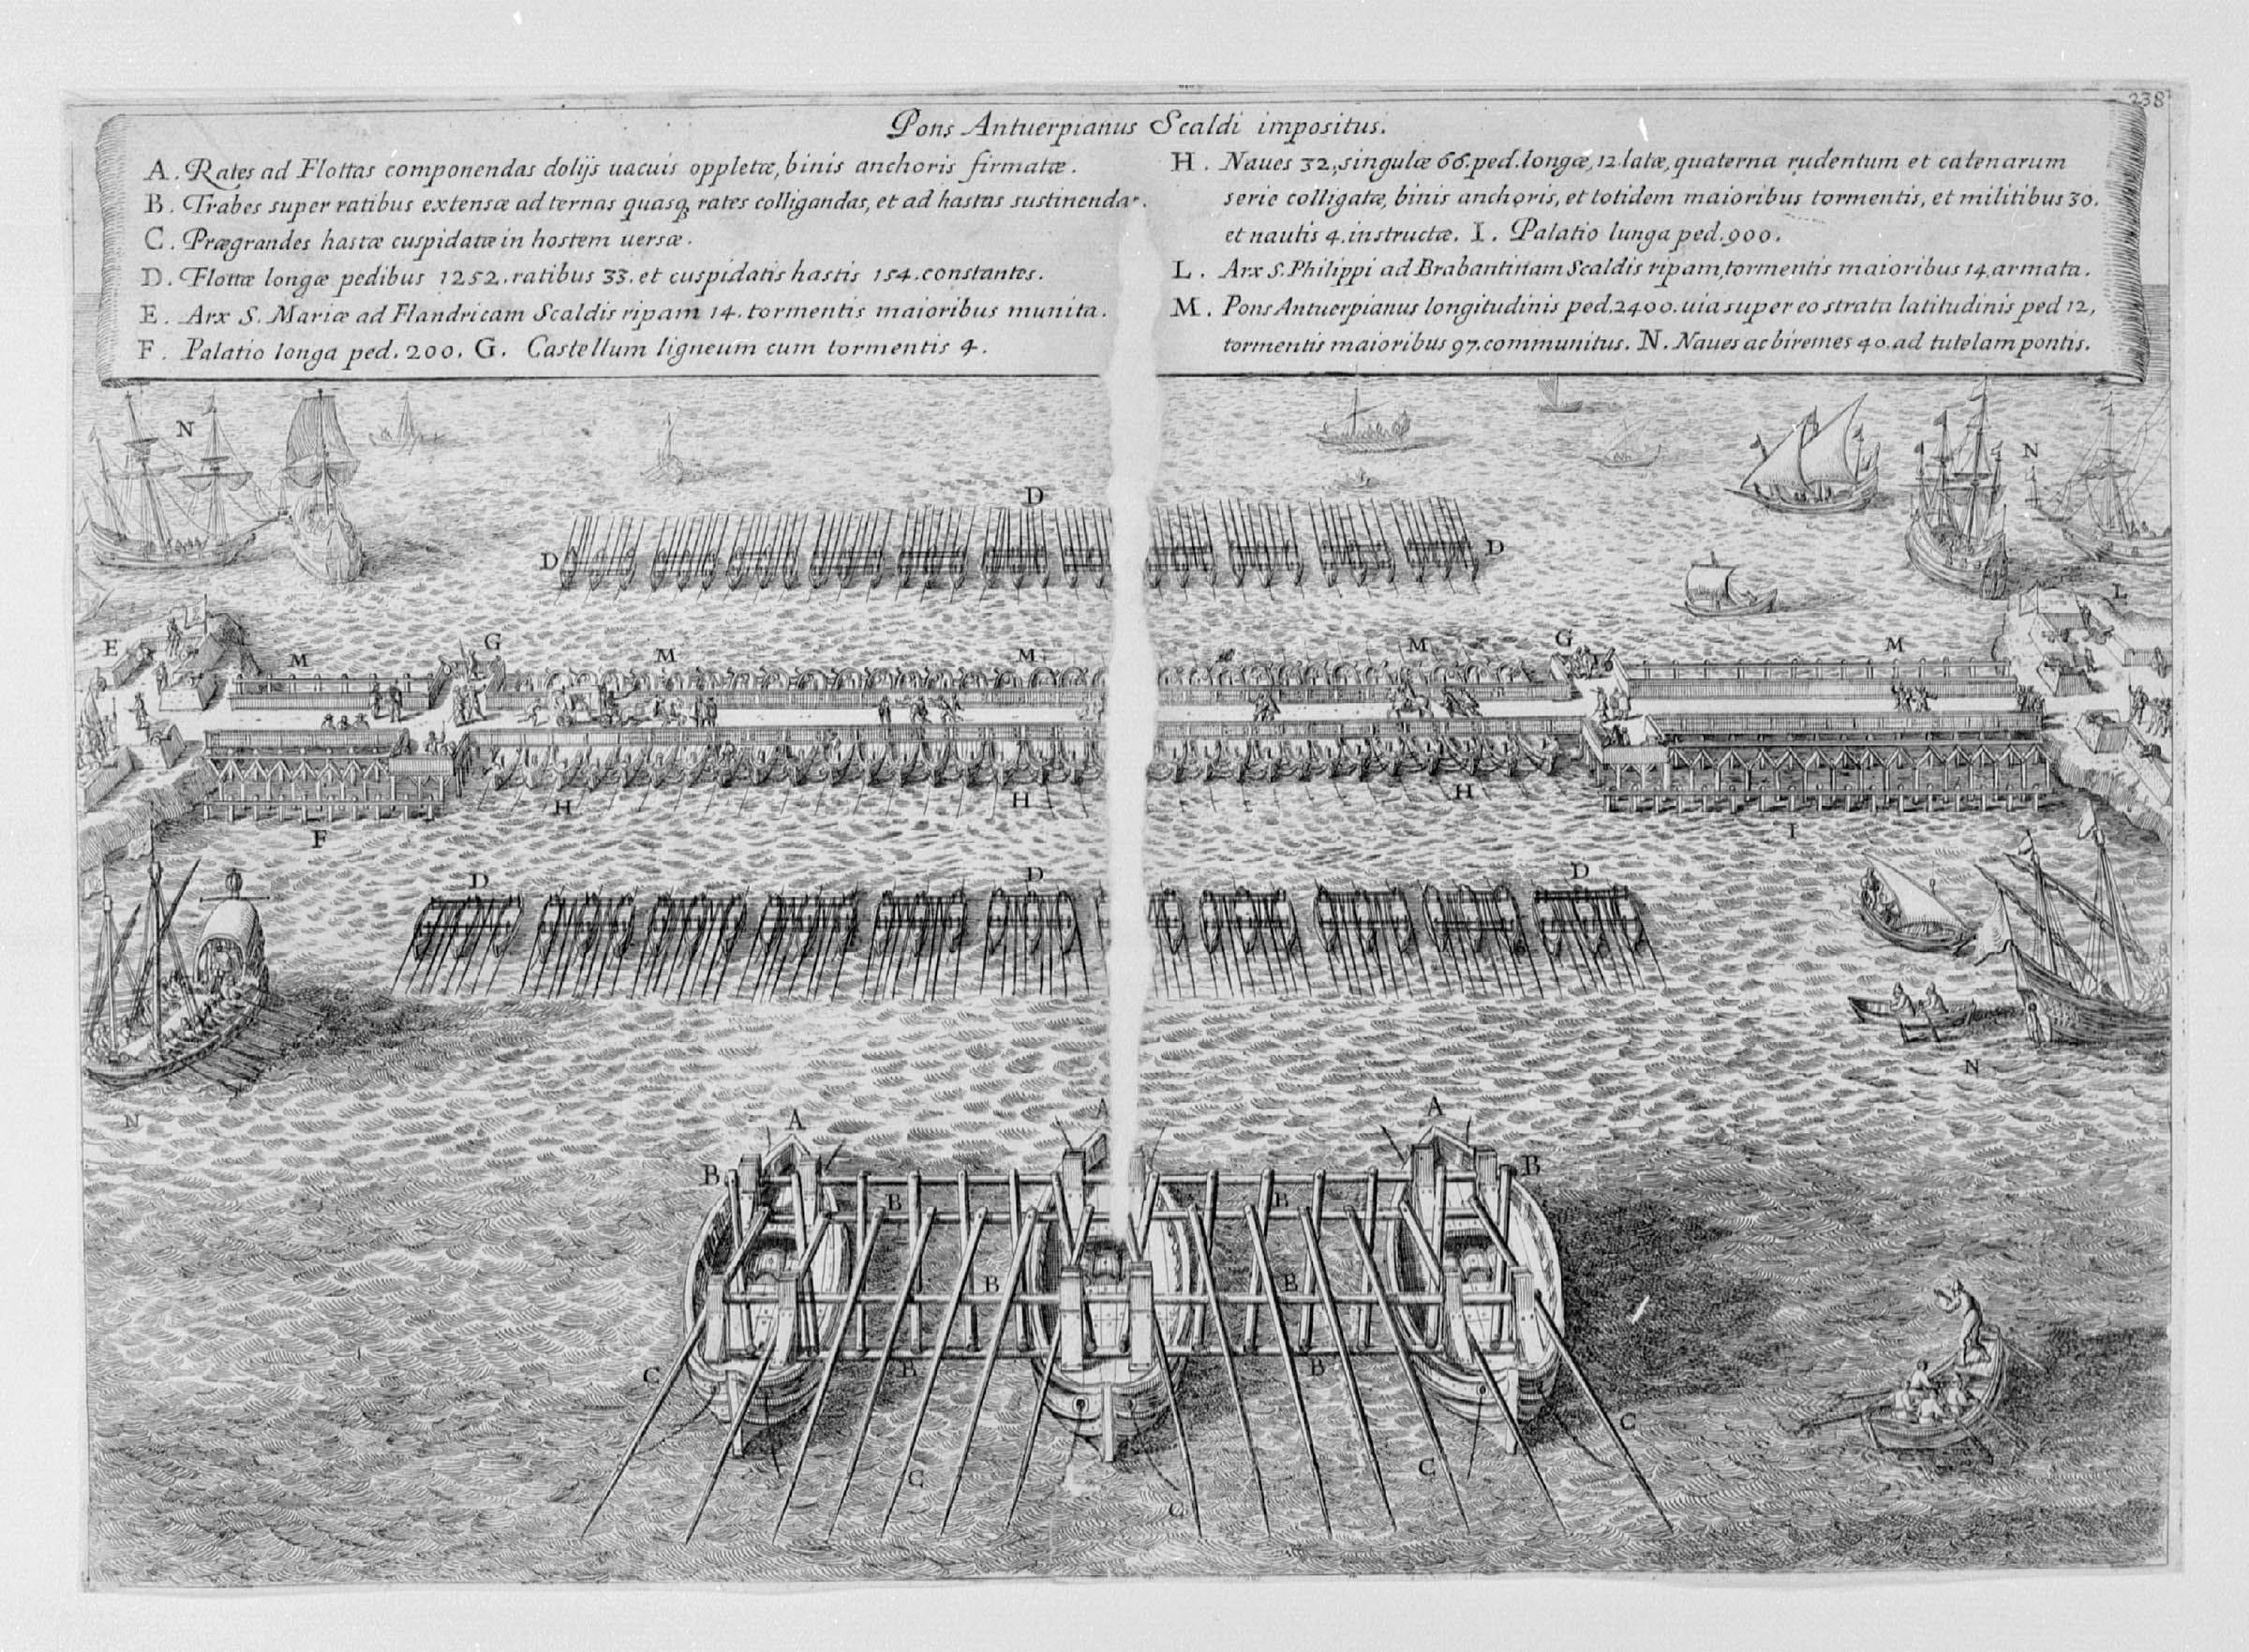 238
Pons Antuerpianus Scaldi impositus.
A. Rates ad Flottas componendas dolijs uacuis oppletæ, binis anchoris firmatæ.
B. Trabes super ratibus extensæ ad ternas quasq, rates colligandas, et ad hastas sustinendas.
C. Prægrandes hastæ cuspidatæ in hostem uersæ.
D. Flottæ longæ pedibus 1252. ratibus 33. et cuspidatis hastis 154. constantes.
E. Arx S. Mariæ ad Flandricam Scaldis ripam 14. tormentis maioribus munita.
F. Palatio longa ped. 200. G. Castellum ligneum cum tormentis 4.
H. Naues 32, singulæ 66. ped. longæ, 12. latæ, quaterna rudentum et catenarum
serie colligatæ, binis anchoris, et totidem maioribus tormentis, et militibus 30.
et nautis 4. instructæ. I. Palatio lunga ped. 900.
L. Arx S. Philippi ad Brabantinam Scaldis ripam, tormentis maioribus 14. armata.
M. Pons Antuerpianus longitudinis ped. 2400. uia super eo strata latitudinis ped 12,
tormentis maioribus 97. communitus. N. Naues ac biremes 40. ad tutelam pontis.
N
N
D
D
D
L
E
M
G
M
M
M
G
M
H
H
H
F
I
D
D
D
N
N
A
A
A
B
B
B
B
B
B
C
B
B
C
C
C
C